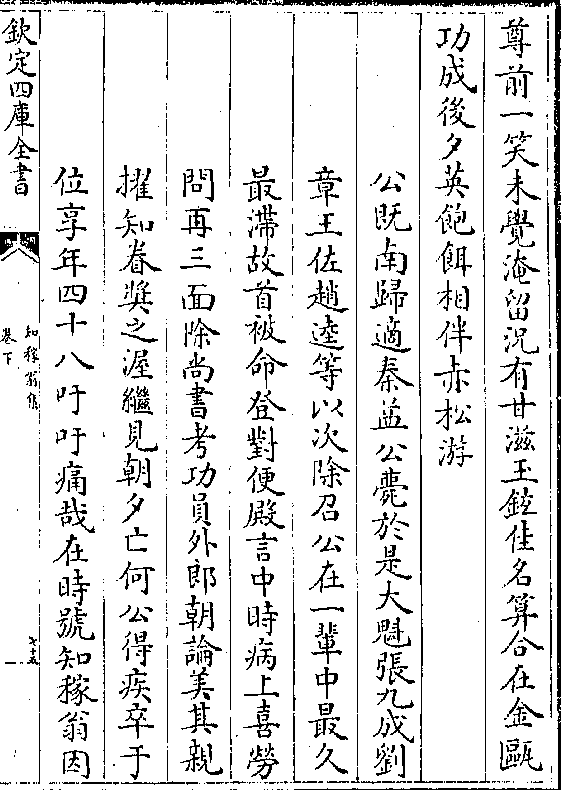 尊前一笑未覺淹留況有甘滋玉鉉佳名算合在金甌
功成後夕英飽餌相伴赤松游
公既南歸適秦益公薨於是大魁張九成劉
章王佐趙逵等以次除召公在一輩中最久
最滯故首被命登對便殿言中時病上喜勞
問再三面除尚書考功員外郎朝論美其親
擢知眷奬之渥繼見朝夕亡何公得疾卒于
位享年四十八吁吁痛哉在時號知稼翁因
欽定四庫全書
知稼翁集
卷下